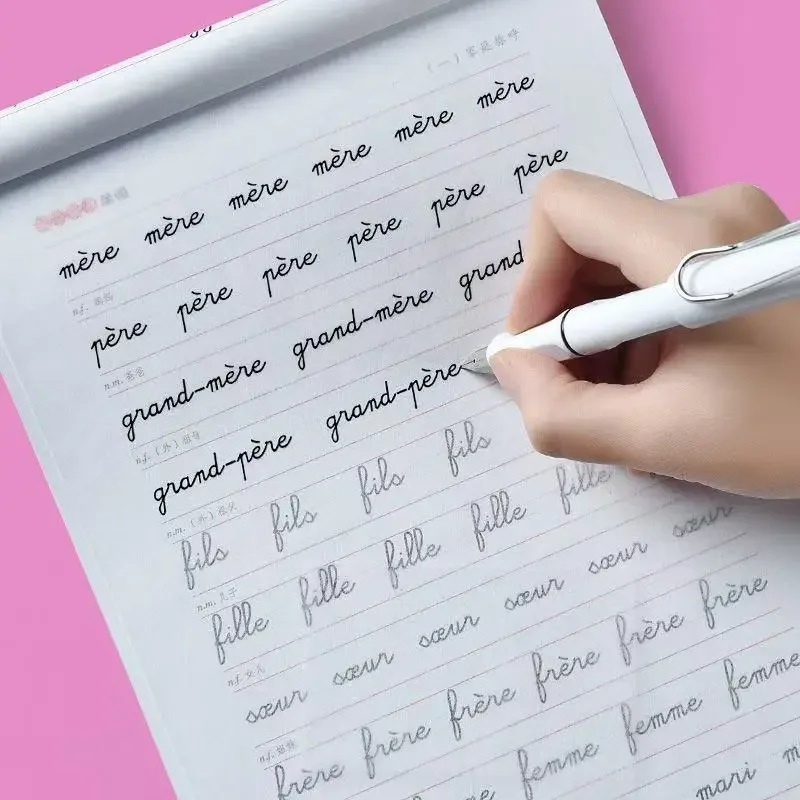 （一）家庭称呼
mère mère mère mère mère mère
n.f. 妈妈
père père père père père père
n.m. 爸爸
grand-mère grand-mère grand
n.f.（外）祖母
grand-père grand-père
n.m.（外）祖父
fils fils fils fils
n.m. 儿子
fille fille fille fille fille
n.f. 女儿
sœur sœur sœur sœur sœur sœur
n.f. 姐妹
frère frère frère frère frère frère
femme femme femme
mari